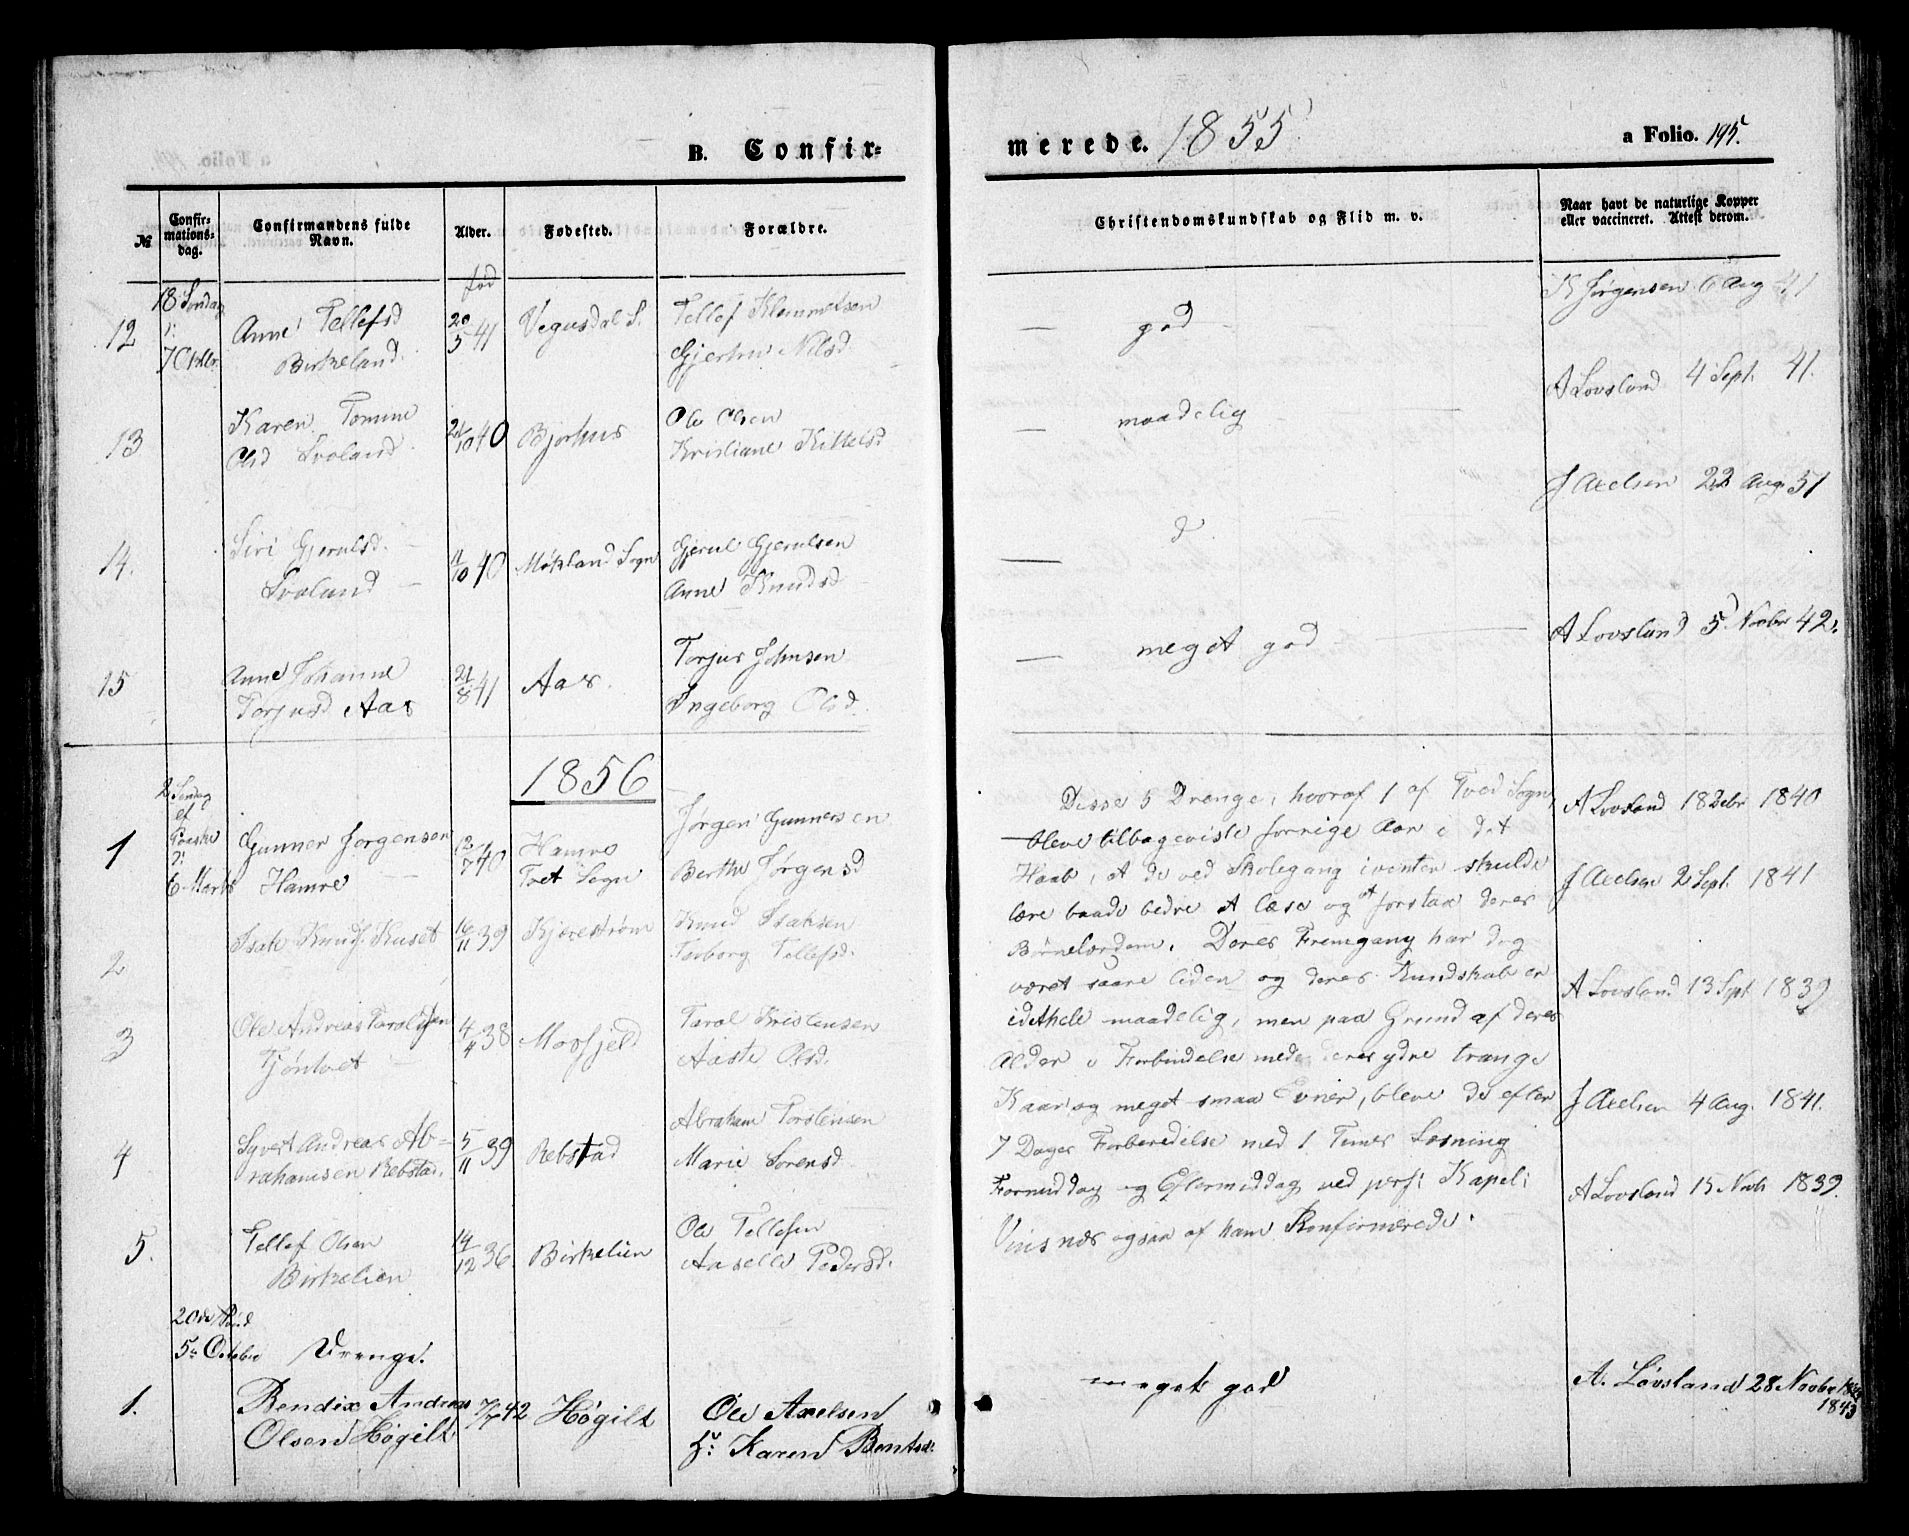 B. Confir-
merede. 1855
a Folio. 195.
№
Confir-
mations-
dag.
Confirmandens fulde
Navn.
Alder.
Fødested.
Forældre.
Christendomskundskab og Flid m. v.
Naar havt de naturlige Kopper
eller vaccineret. Attest derom.
fød
18 Søndag
7 Oktbr.
12
Anne Tellefsd
Birkeland.
20/5 41
Vegusdal S.
Tellef Klemmetsen
Nilsd.
god
K Jørgensen 6 Aug 41
13
Karen Tomine
Olsd Svaland
21/10 40
Bjorhus
Ole Olsen
Kristiane Kittelsd
maadelig
A Lovsland 4 Sept. 41.
14.
Siri Gjerulsd.
Svaland
11/10 40
Møkland Sogn
Gjerul Gjerulsen
Anne Knudsd
d.
J Axelsen 22 Aug. 51
15
Anne Johanne
Torjusd Aas
21/8 41
Aas.
Torjus Johnsen
Ingeborg Olsd.
meget god
A Lovsland 5 Novbr 42.
1856
2 Søndag
ef
Paaske
6 Marts
1
Gunner Jørgensen
Hamre
12/7 40
Hamre
Tvet Sogn
Jørgen Gunnersen
Berthe Jørgensd
2
Isak Knuds. Kuset
16/11 39
Kjørestrøm
Knud Isaksen
Torborg Tellefsd.
3
Ole Andreas Taraldsen
Tjøntvet
4/4 38
Movfjeld
Tarol Kristensen
Aaste Olsd.
4
Syvert Andreas Ab-
rahamsen Rebstad.
5/11 39
Rebstad
Abraham Torstensen
Marie Sorensd
5.
Tellef Olsen
Birkelien
14/12 36
Birkelien
Ole Tellefsen
Aaselle Pedersd.
Disse 5 Drenge, hvoraf 1 af Tved Sogn,
bleve tilbageviste forrige Aar i det
Haab, at de ved Skolegang i vinter skulde
lære baade bedre at læse og at forstaa deres
Børnelærdom. Deres Fremgang har dog
været saare liden og deres Kundskab er
idethele maadelig, men paa Grund af deres
Alder i Forbindelse med deres ydre trange
Kaar og meget smaa Evner, bleve de efter
7 Dages Forberedelse med 1 Times Læsning
Formiddag og Eftermiddag ved pers: Kapel:
Vinsnæs ogsaa af ham Konfirmerede.
A Lovsland 1840
J Axelsen 2 Sept. 1841
A Lovsland 13 Sept 1839
J Axelsen 4 Aug. 1841.
A Lovsland 15 Novb 1839.
5te October
Drenge.
1.
Bendix Andreas
Olsen Høgilt
7/7 42
Høgilt
Ole Axelsen
Karen Bentsd.
meget god
A. Løvsland 28 Novbr
1843